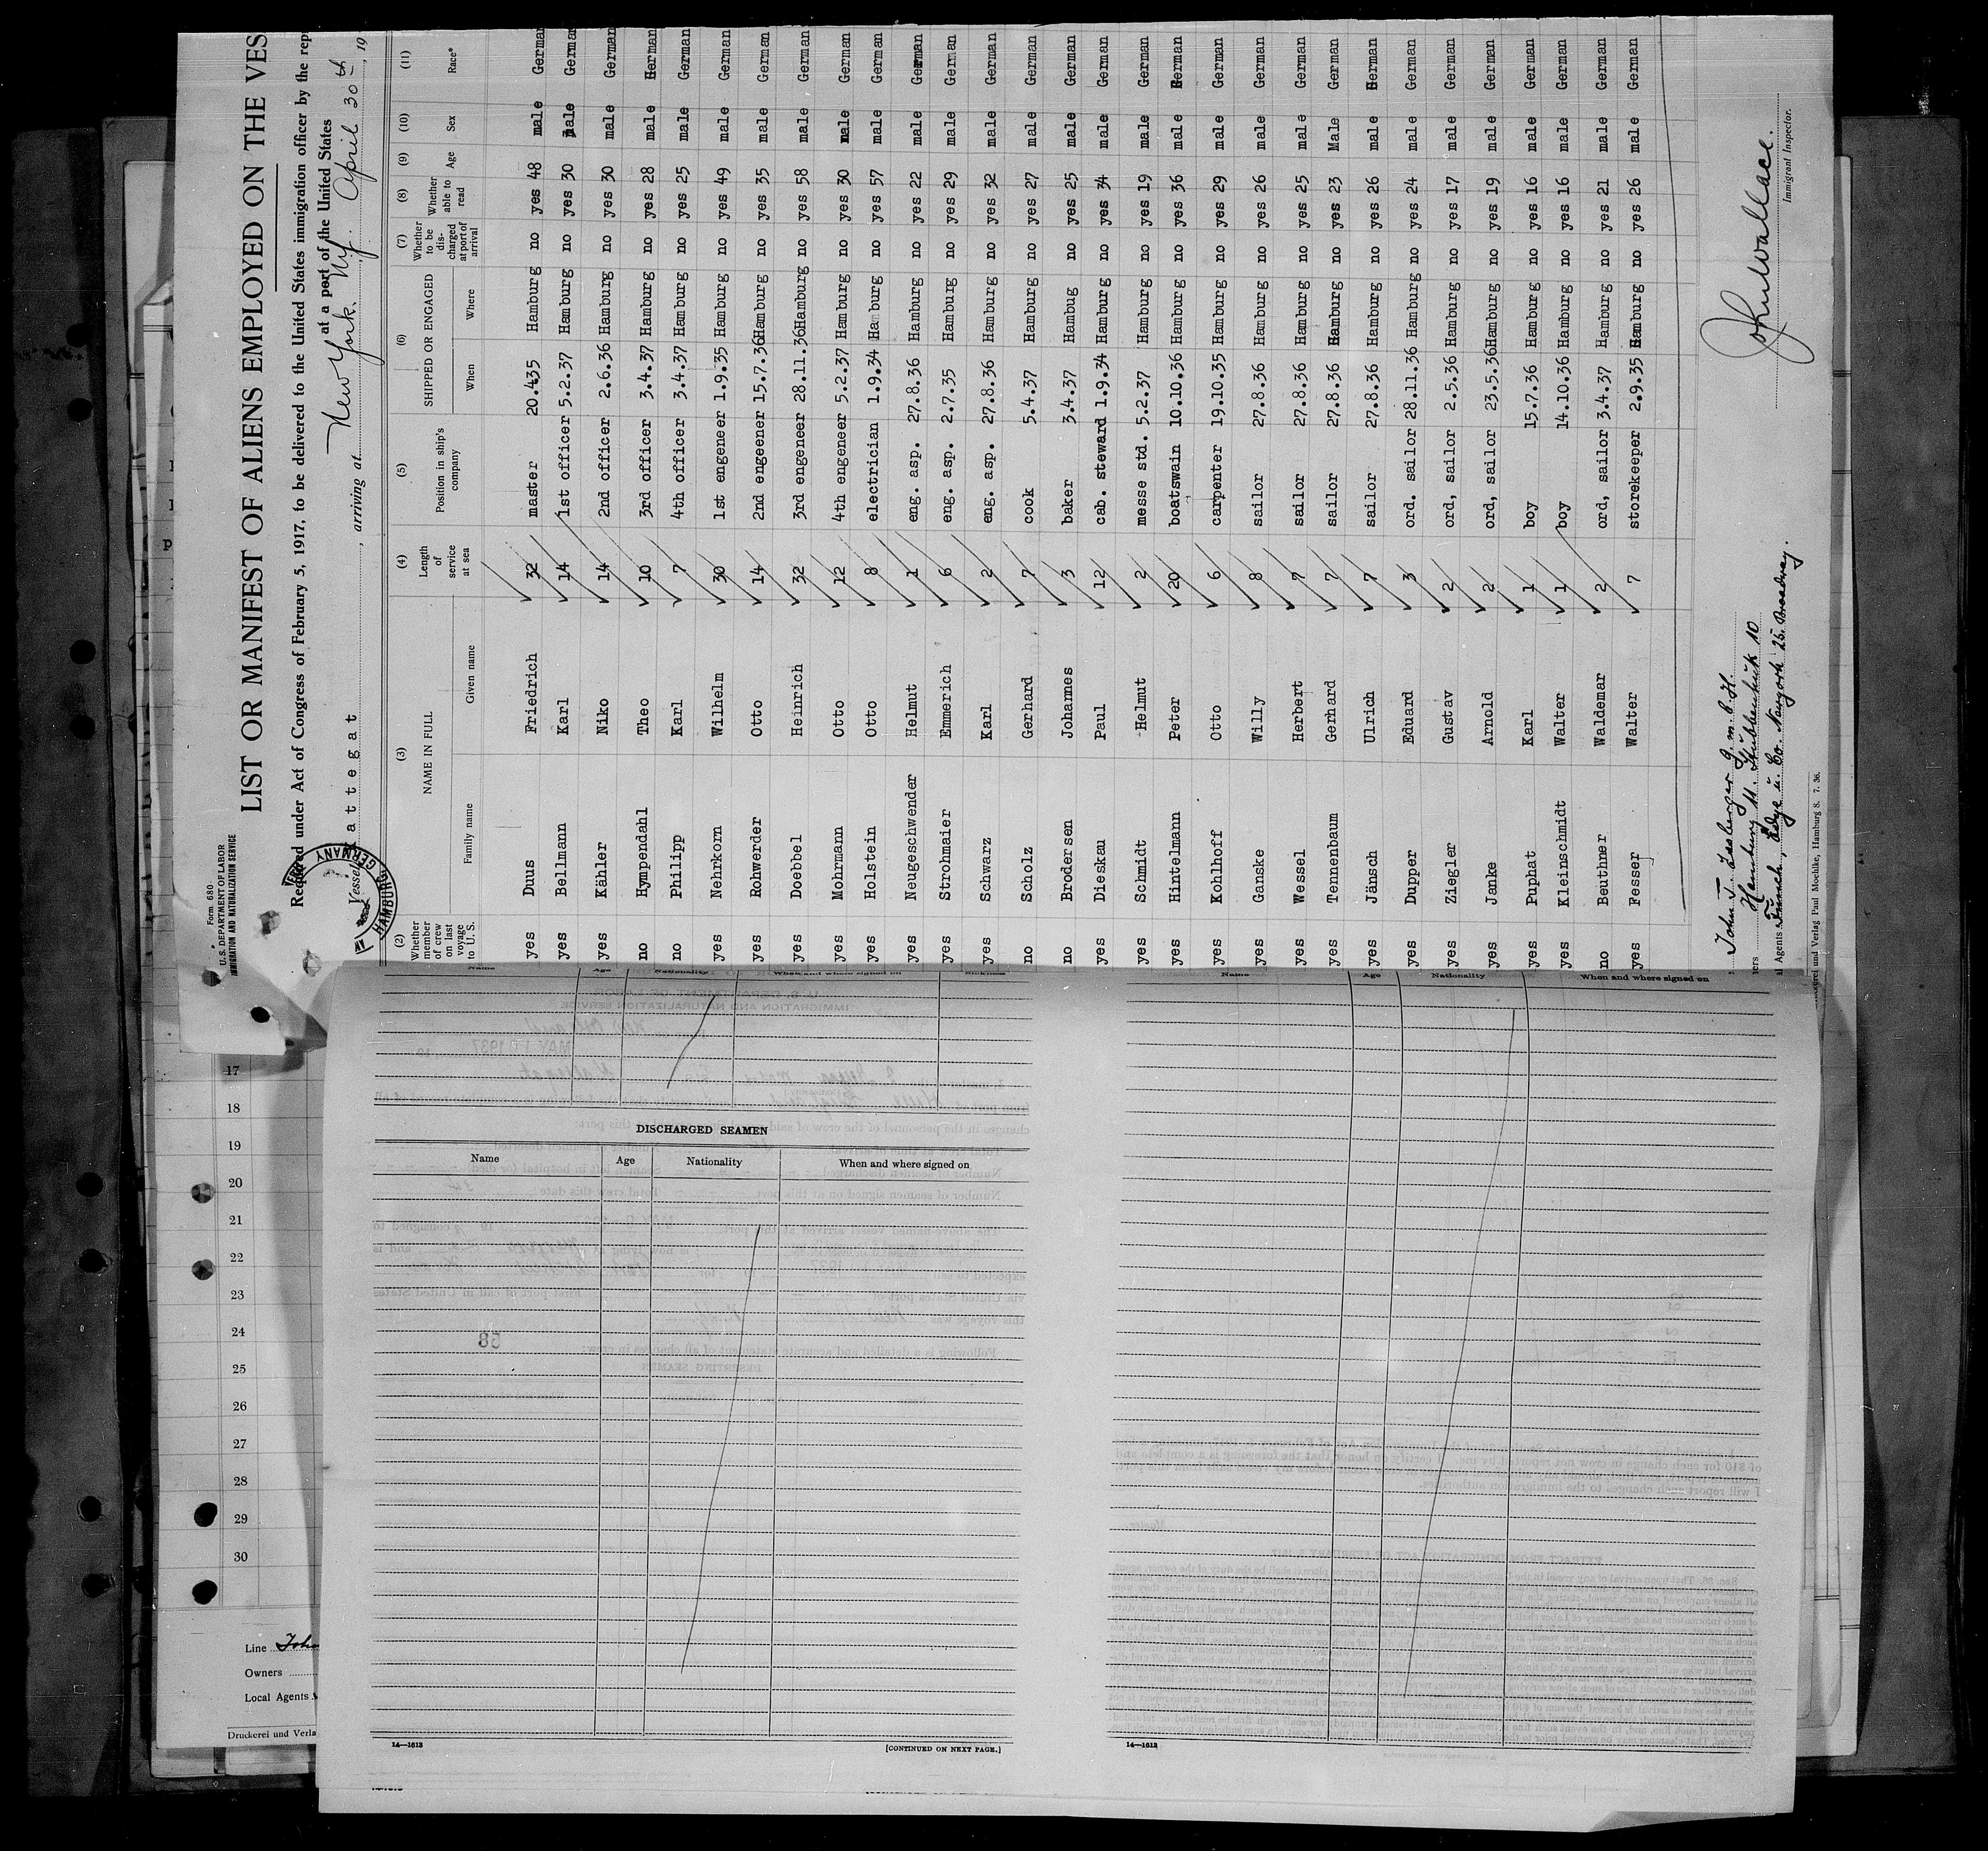 Form 680
U. S. DEPARTMENT OF LABOR
IMMIGRATION AND NATURALIZATION SERVICE
LIST OR MANIFEST OF ALIENS EMPLOYED ON THE VES
Required under Act of Congress of February 5, 1917, to be delivered to the United States immigration officer by the rep
at a port of the United States
Vessel attegat, arriving at New York. Ny. April 30th, 19
HAMBURG GERMANY
(2) (3) (4) (5) (6) (7) (8) (9) (10) (11)
Whether member of crew on last voyage to U. S. NAME IN FULL Length of service at sea Position in ship's company SHIPPED OR ENGAGED Whether to be discharged at port of arrival Whether able to read Age Sex Race*
Family name Given name When Where
yes Duus Friedrich 32 master 20.435 Hamburg no yes 48 male German
yes Bellmann Karl 14 1st officer 5.2.37 Hamburg no yes 30 male German
yes Kähler Niko 14 2nd officer 2.6.36 Hamburg no yes 30 male German
no Hympendahl Theo 10 3rd officer 3.4.37 Hamburg no yes 28 male German
no Philipp Karl 7 4th officer 3.4.37 Hamburg no yes 25 male German
yes Nehrkorn Wilhelm 30 1st engeneer 1.9.35 Hamburg no yes 49 male German
yes Rohwerder Otto 14 2nd engeener 15.7.36Hamburg no yes 35 male German
yes Doebbel Heinrich 32 3rd engeneer 28.11.36Hamburg no yes 58 male German
yes Mohrmann Otto 12 4th engeneer 5.2.37 Hamburg no yes 30 male German
yes Holstein Otto 8 electrician 1.9.34 Hamburg no yes 57 male German
yes Neugeschwender Helmut 1 eng. asp. 27.8.36 Hamburg no yes 22 male German
yes Strohmaier Emmerich 6 eng. asp. 2.7.35 Hamburg no yes 29 male German
yes Schwarz Karl 2 eng. asp. 27.8.36 Hamburg no yes 32 male German
no Scholz Gerhard 7 cook 5.4.37 Hamburg no yes 27 male German
no Brodersen Johannes 3 baker 3.4.37 Hambug no yes 25 male German
yes Dieskau Paul 12 cab. steward 1.9.34 Hamburg no yes 34 male German
yes Schmidt Helmut 2 messe std. 5.2.37 Hamburg no yes 19 male German
yes Hintelmann Peter 20 boatswain 10.10.36 Hamburg no yes 36 male German
yes Kohlhoff Otto 6 carpenter 19.10.35 Hamburg no yes 29 male German
yes Ganske Willy 8 sailor 27.8.36 Hamburg no yes 26 male German
yes Wessel Herbert 7 sailor 27.8.36 Hamburg no yes 25 male German
yes Tennenbaum Gerhard 7 sailor 27.8.36 Hamburg no yes 23 Male German
yes Jänsch Ulrich 7 sailor 27.8.36 Hamburg no yes 26 male German
yes Dupper Eduard 3 ord. sailor 28.11.36 Hamburg no yes 24 male German
yes Ziegler Gustav 2 ord, sailor 2.5.36 Hamburg no yes 17 male German
yes Janke Arnold 2 ord, sailor 23.5.36Hamburg no yes 19 male German
yes Puphat Karl 1 boy 15.7.36 Hamburg no yes 16 male German
yes Kleinschmidt Walter 1 boy 14.10.36 Hamburg no yes 16 male German
no Beuthner Waldemar 2 ord, sailor 3.4.37 Hamburg no yes 21 male German
yes Fesser Walter 7 storekeeper 2.9.35 Hamburg no yes 26 male German
John T. Essberger G.m.b.H.
Hamburg 11. Stubbenhuk 10
Agents Funch, Edye u. Co. Newyork 25. Broadway.
John Wallace.
Immigrant Inspector.
und Verlag Paul Moehlke, Hamburg 8. 7. 36.
Name Age Nationality When and where signed on
Name Age Nationality When and where signed on
DISCHARGED SEAMEN
Name Age Nationality When and where signed on
58
14—1613 [CONTINUED ON NEXT PAGE.]
14—1612
17
18
19
20
21
22
23
24
25
26
27
28
29
30
Line John
Owners
Local Agents
Druckerei und Verla